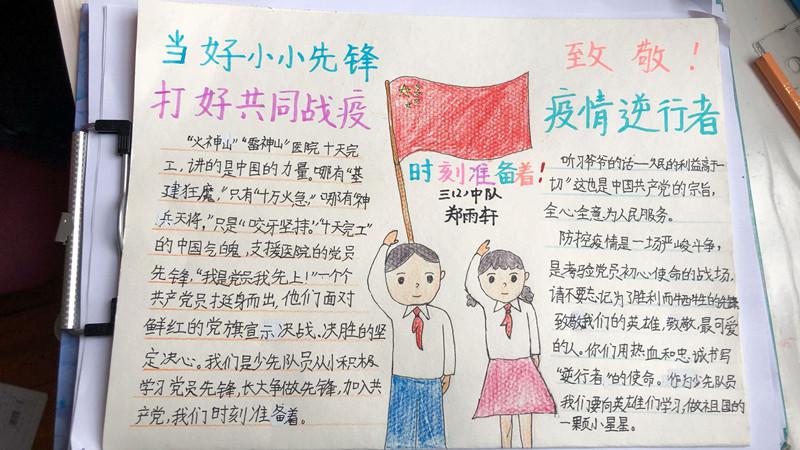 当好小小先锋
打好共同战疫
"火神山""雷神山"医院十天完
工,讲的是中国的力量。哪有"基
建狂魔,"只有"十万火急。"哪有"神
兵天将,"只是"咬牙坚持。""十天完工"
的中国气魄,支援医院的党员
先锋,"我是党员我先上!"一个个
共产党员挺身而出,他们面对
鲜红的党旗宣示决战、决胜的坚
定决心。我们是少先队员从小积极
学习党员先锋,长大争做先锋,加入共
产党,我们时刻准备着。
时刻准备着!
三(2)中队
郑雨轩
致敬!
疫情逆行者
听习爷爷的话—人民的利益高于
一切"这也是中国共产党的宗旨,
全心全意为人民服务。
防控疫情是一场严峻斗争,
是考验党员初心使命的战场,
请不要忘记为了胜利而牺牲的
致敬我们的英雄,致敬,最可爱
的人。你们用热血和忠诚书写
"逆行者"的使命。作为少先队员
我们要向英雄们学习,做祖国的
一颗小星星。